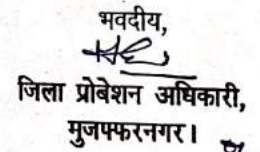 भवदीय,
जिला प्रोबेशन अधिकारी,
मुजफ्फरनगर।